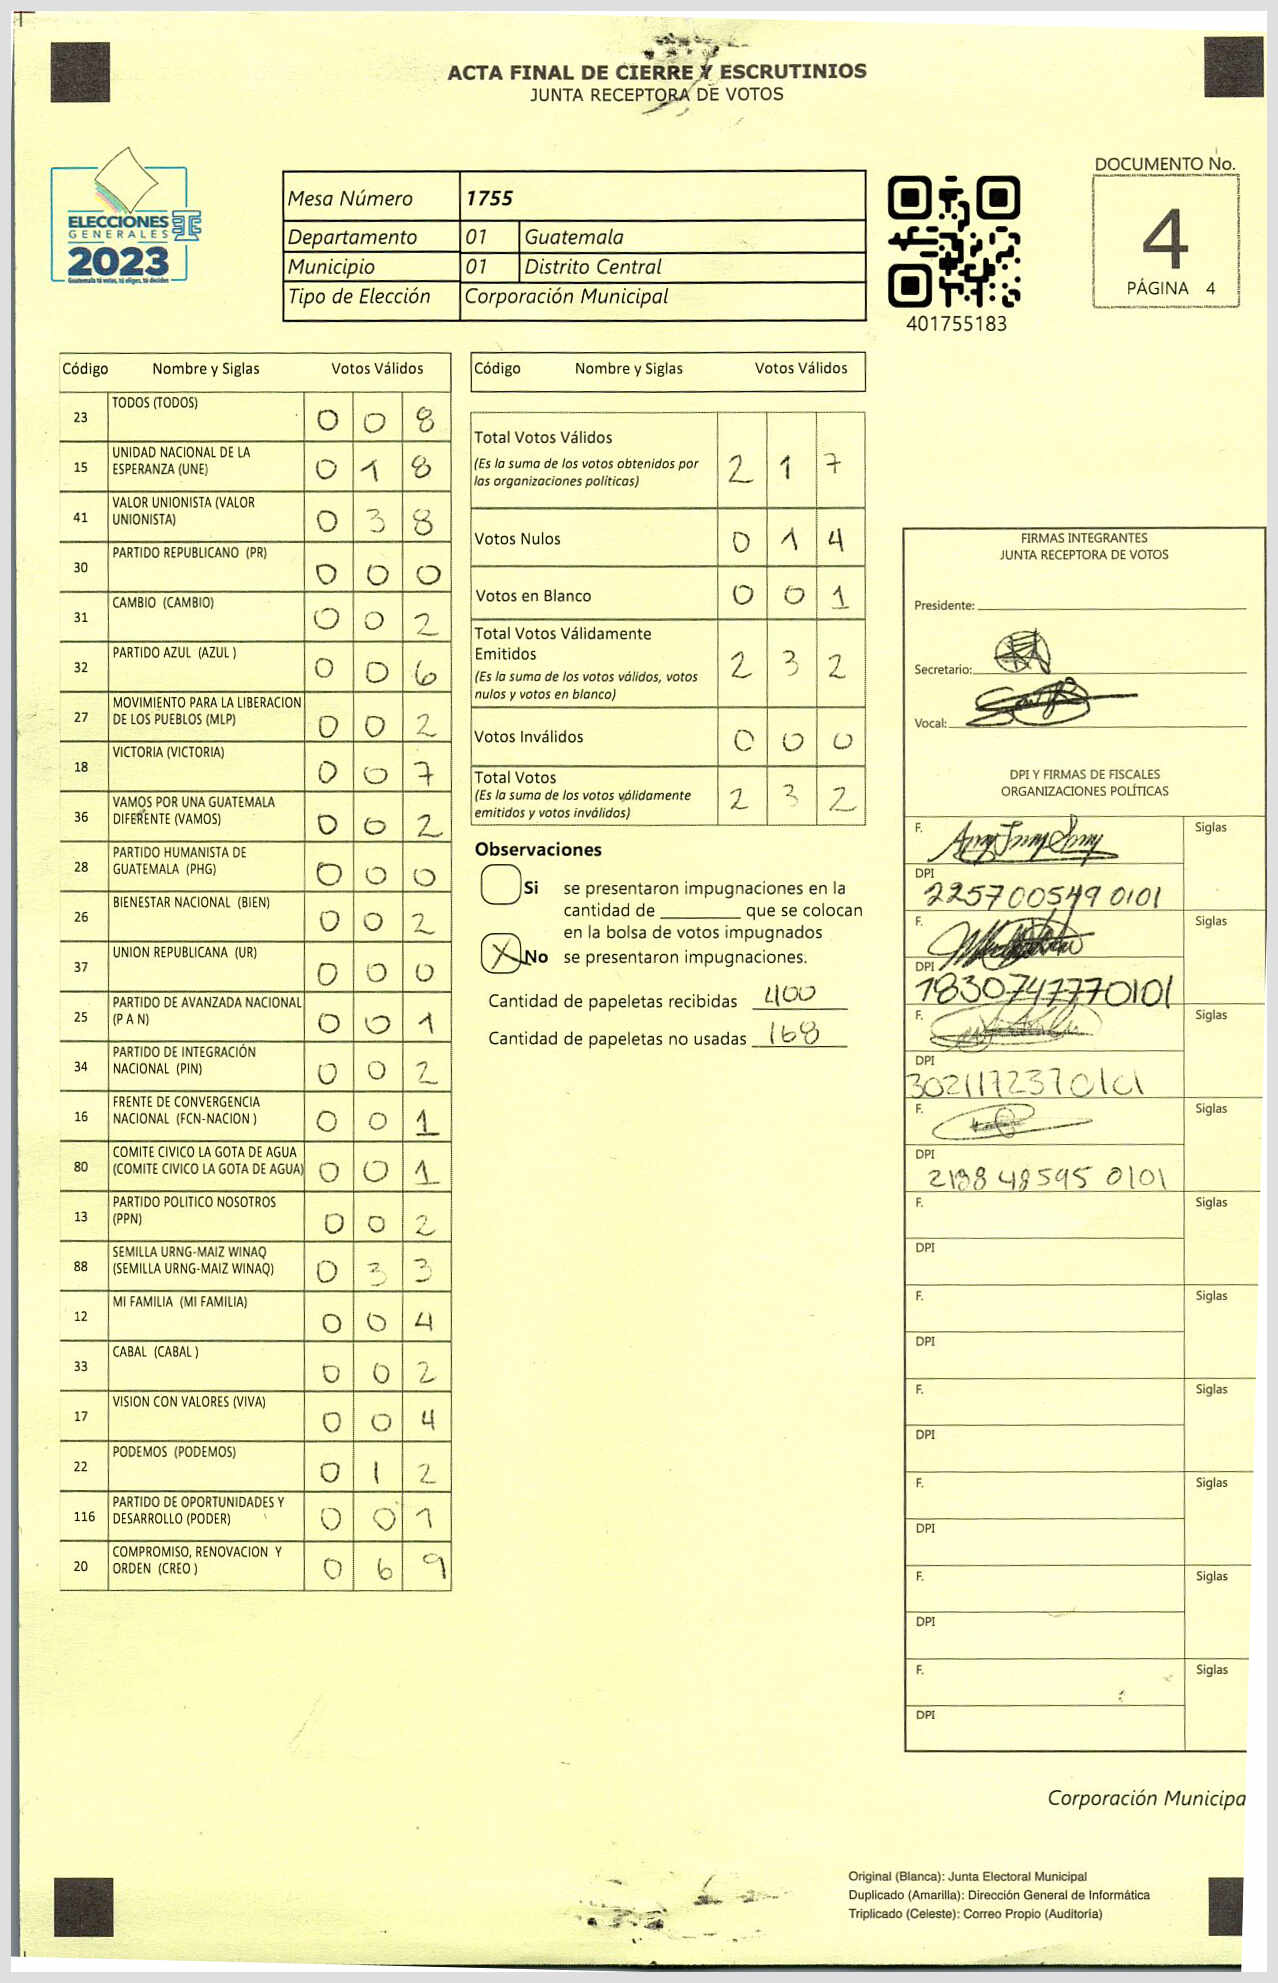 ACTA FINAL DE CIERRE Y ESCRUTINIOS
JUNTA RECEPTORA DE VOTOS
ELECCIONES
GENERALES
2023
Guatemala tú votas, tú eliges, tú decides
Mesa Número 1755
Departamento 01 Guatemala
Municipio 01 Distrito Central
Tipo de Elección Corporación Municipal
401755183
DOCUMENTO No.
4
PÁGINA 4
Código Nombre y Siglas Votos Válidos
23 TODOS (TODOS) 0 0 8
15 UNIDAD NACIONAL DE LA
ESPERANZA (UNE) 0 1 8
41 VALOR UNIONISTA (VALOR
UNIONISTA) 0 3 8
30 PARTIDO REPUBLICANO (PR) 0 0 0
31 CAMBIO (CAMBIO) 0 0 2
32 PARTIDO AZUL (AZUL ) 0 0 6
27 MOVIMIENTO PARA LA LIBERACION
DE LOS PUEBLOS (MLP) 0 0 2
18 VICTORIA (VICTORIA) 0 0 7
36 VAMOS POR UNA GUATEMALA
DIFERENTE (VAMOS) 0 0 2
28 PARTIDO HUMANISTA DE
GUATEMALA (PHG) 0 0 0
26 BIENESTAR NACIONAL (BIEN) 0 0 2
37 UNION REPUBLICANA (UR) 0 0 0
25 PARTIDO DE AVANZADA NACIONAL
(P A N) 0 0 1
34 PARTIDO DE INTEGRACIÓN
NACIONAL (PIN) 0 0 2
16 FRENTE DE CONVERGENCIA
NACIONAL (FCN-NACION ) 0 0 1
80 COMITE CIVICO LA GOTA DE AGUA
(COMITE CIVICO LA GOTA DE AGUA) 0 0 1
13 PARTIDO POLITICO NOSOTROS
(PPN) 0 0 2
88 SEMILLA URNG-MAIZ WINAQ
(SEMILLA URNG-MAIZ WINAQ) 0 3 3
12 MI FAMILIA (MI FAMILIA) 0 0 4
33 CABAL (CABAL ) 0 0 2
17 VISION CON VALORES (VIVA) 0 0 4
22 PODEMOS (PODEMOS) 0 1 2
116 PARTIDO DE OPORTUNIDADES Y
DESARROLLO (PODER) 0 0 1
20 COMPROMISO, RENOVACION Y
ORDEN (CREO ) 0 6 9
Código Nombre y Siglas Votos Válidos
Total Votos Válidos
(Es la suma de los votos obtenidos por
las organizaciones políticas) 2 1 7
Votos Nulos 0 1 4
Votos en Blanco 0 0 1
Total Votos Válidamente
Emitidos
(Es la suma de los votos válidos, votos
nulos y votos en blanco) 2 3 2
Votos Inválidos 0 0 0
Total Votos
(Es la suma de los votos válidamente
emitidos y votos inválidos) 2 3 2
Observaciones
Si se presentaron impugnaciones en la
cantidad de ________ que se colocan
en la bolsa de votos impugnados
X No se presentaron impugnaciones.
Cantidad de papeletas recibidas 400
Cantidad de papeletas no usadas 168
FIRMAS INTEGRANTES
JUNTA RECEPTORA DE VOTOS
Presidente:
Secretario:
Vocal:
DPI Y FIRMAS DE FISCALES
ORGANIZACIONES POLÍTICAS
F. Siglas
DPI
225700549 0101
F. Siglas
DPI
1830747770101
F. Siglas
DPI
3021172370101
F. Siglas
DPI
2138 48595 0101
F. Siglas
DPI
F. Siglas
DPI
F. Siglas
DPI
F. Siglas
DPI
F. Siglas
DPI
F. Siglas
DPI
Corporación Municipa
Original (Blanca): Junta Electoral Municipal
Duplicado (Amarilla): Dirección General de Informática
Triplicado (Celeste): Correo Propio (Auditoría)